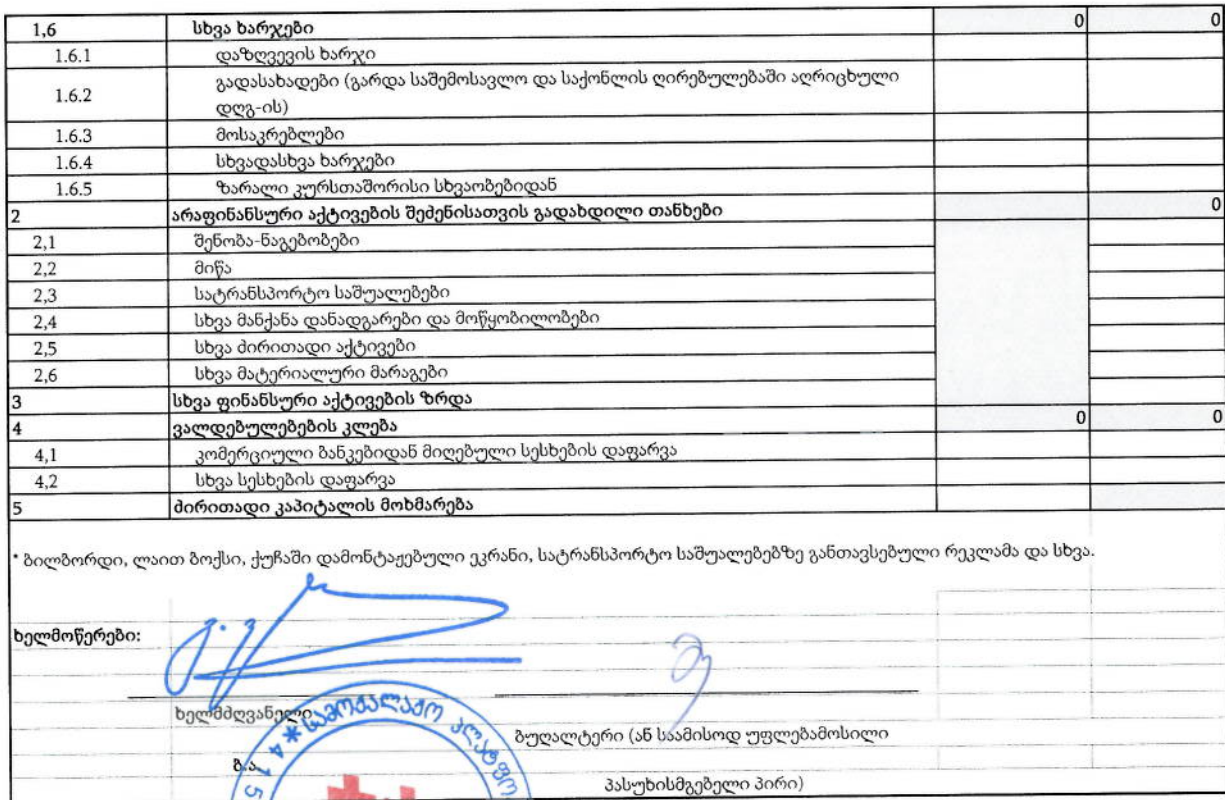 1,6 სხვა ხარჯები 0 0
1.6.1 დაზღვევის ხარჯი
1.6.2 გადასახადები (გარდა საშემოსავლო და საქონლის ღირებულებაში აღრიცხული
დღგ-ის)
1.6.3 მოსაკრებლები
1.6.4 სხვადასხვა ხარჯები
1.6.5 ზარალი კურსთაშორისი სხვაობებიდან
2 არაფინანსური აქტივების შეძენისათვის გადახდილი თანხები 0
2,1 შენობა-ნაგებობები
2,2 მიწა
2,3 სატრანსპორტო საშუალებები
2,4 სხვა მანქანა დანადგარები და მოწყობილობები
2,5 სხვა ძირითადი აქტივები
2,6 სხვა მატერიალური მარაგები
3 სხვა ფინანსური აქტივების ზრდა
4 ვალდებულებების კლება 0 0
4,1 კომერციული ბანკებიდან მიღებული სესხების დაფარვა
4,2 სხვა სესხების დაფარვა
5 ძირითადი კაპიტალის მოხმარება
* ბილბორდი, ლაით ბოქსი, ქუჩაში დამონტაჟებული ეკრანი, სატრანსპორტო საშუალებებზე განთავსებული რეკლამა და სხვა.
ხელმოწერები:
ხელმძღვანელი
ბუღალტერი (ან საამისოდ უფლებამოსილი
ბ.ა.
პასუხისმგებელი პირი)
4 1 5 * სამოქალაქო პლატფო